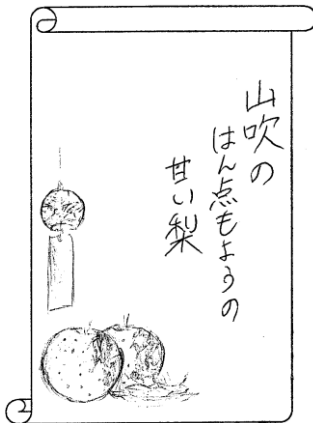 山吹の
はん点もようの
甘い梨